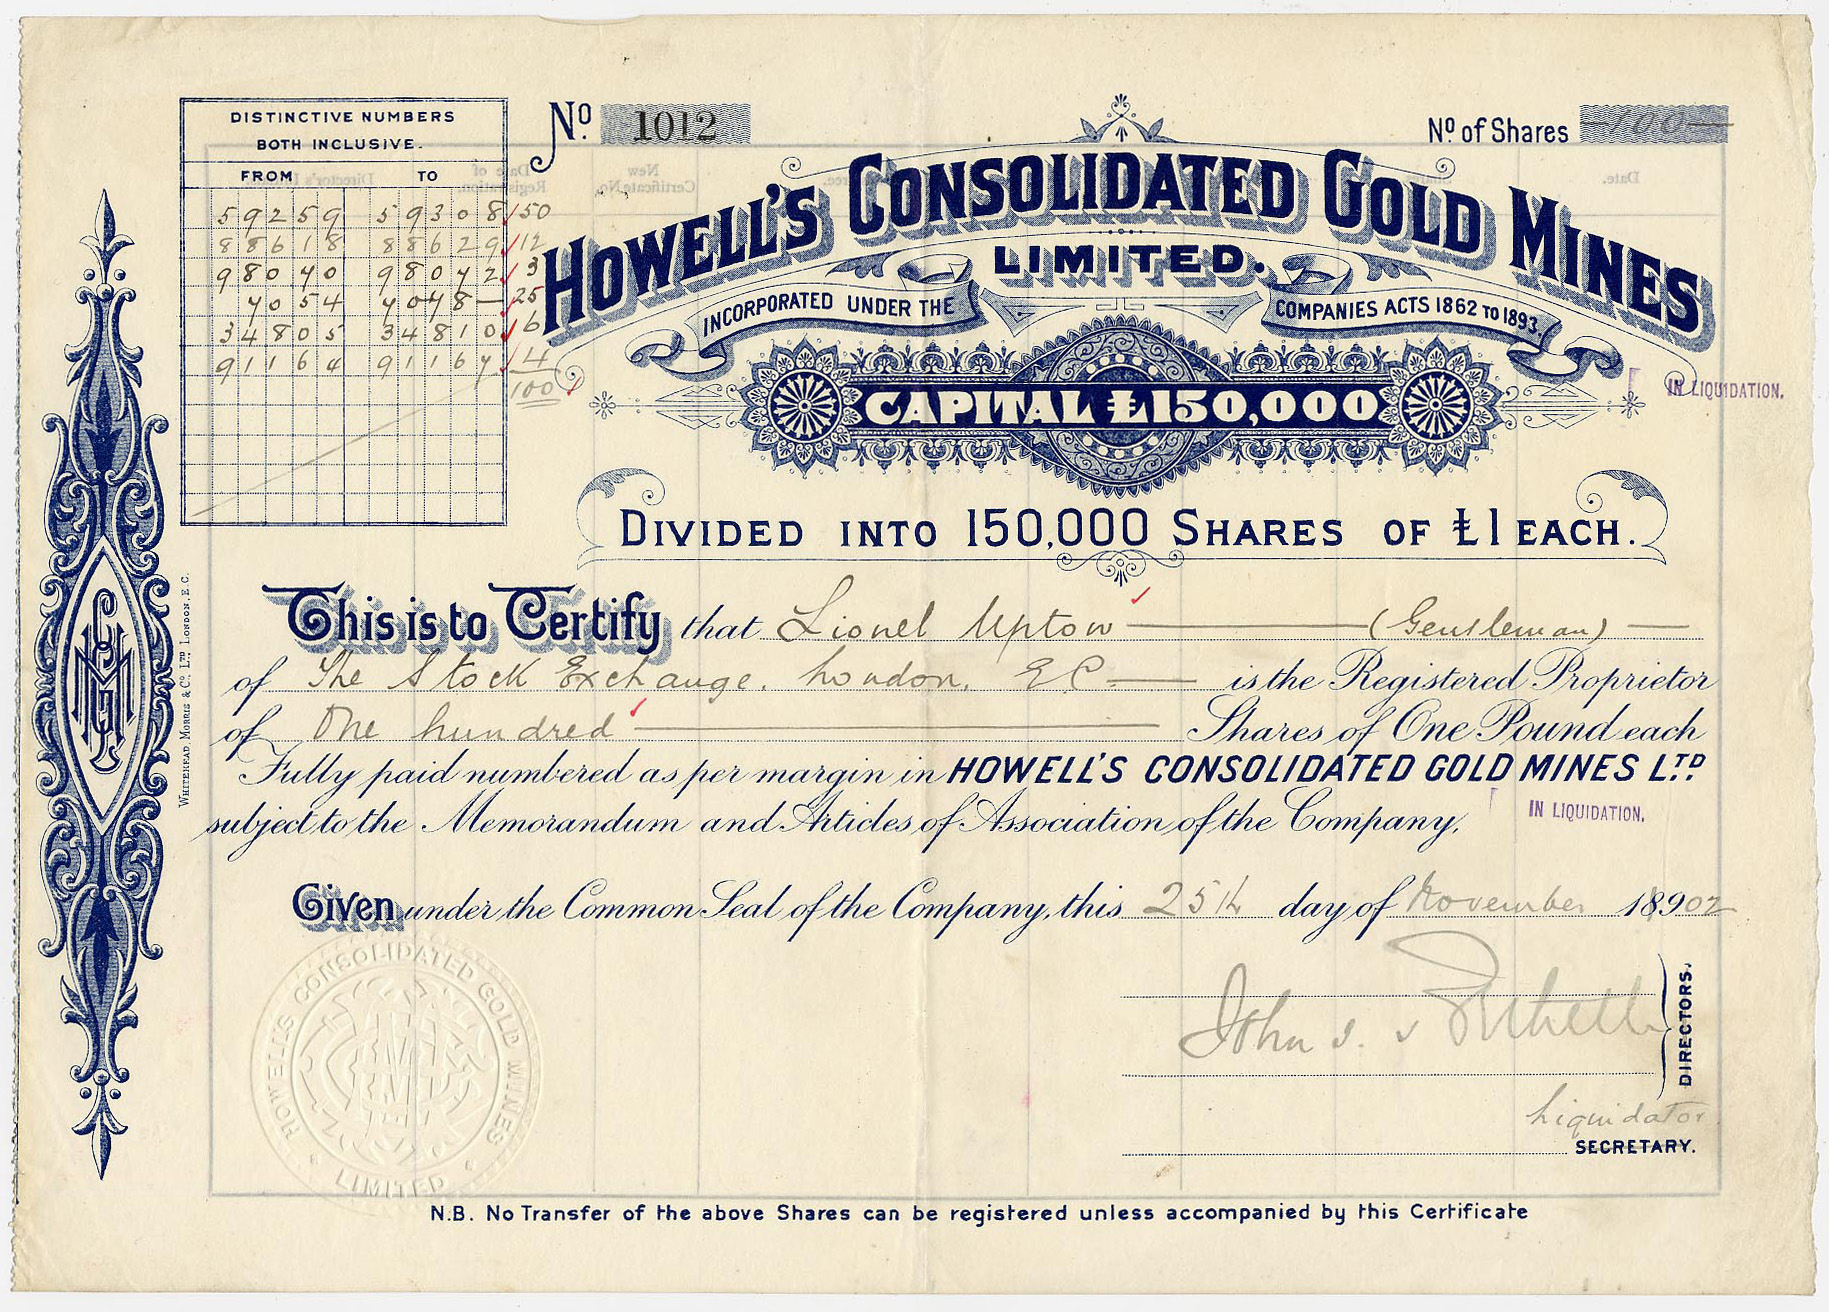 DISTINCTIVE NUMBERS
BOTH INCLUSIVE.
FROM TO
59259 59308 50
88618 88629 12
98040 98042 3
7054 7078 25
34805 34810 6
91164 91167 4
100
No. 1012
No. of Shares 100
HOWELL'S CONSOLIDATED GOLD MINES
LIMITED.
INCORPORATED UNDER THE COMPANIES ACTS 1862 TO 1893.
CAPITAL £150,000
IN LIQUIDATION.
DIVIDED INTO 150,000 SHARES OF £1 EACH.
This is to Certify that Lionel Upton (Gentleman)
of The Stock Exchange. London. E.C. is the Registered Proprietor
of One hundred Shares of One Pound each
Fully paid numbered as per margin in HOWELL'S CONSOLIDATED GOLD MINES LTD
IN LIQUIDATION.
subject to the Memorandum and Articles of Association of the Company.
Given under the Common Seal of the Company, this 25th day of November 18902
John
DIRECTORS.
Liquidator
SECRETARY.
HOWELL'S CONSOLIDATED GOLD MINES
LIMITED
N.B. No Transfer of the above Shares can be registered unless accompanied by this Certificate
WHITEHEAD, MORRIS & Co. LTD LONDON, E.C.